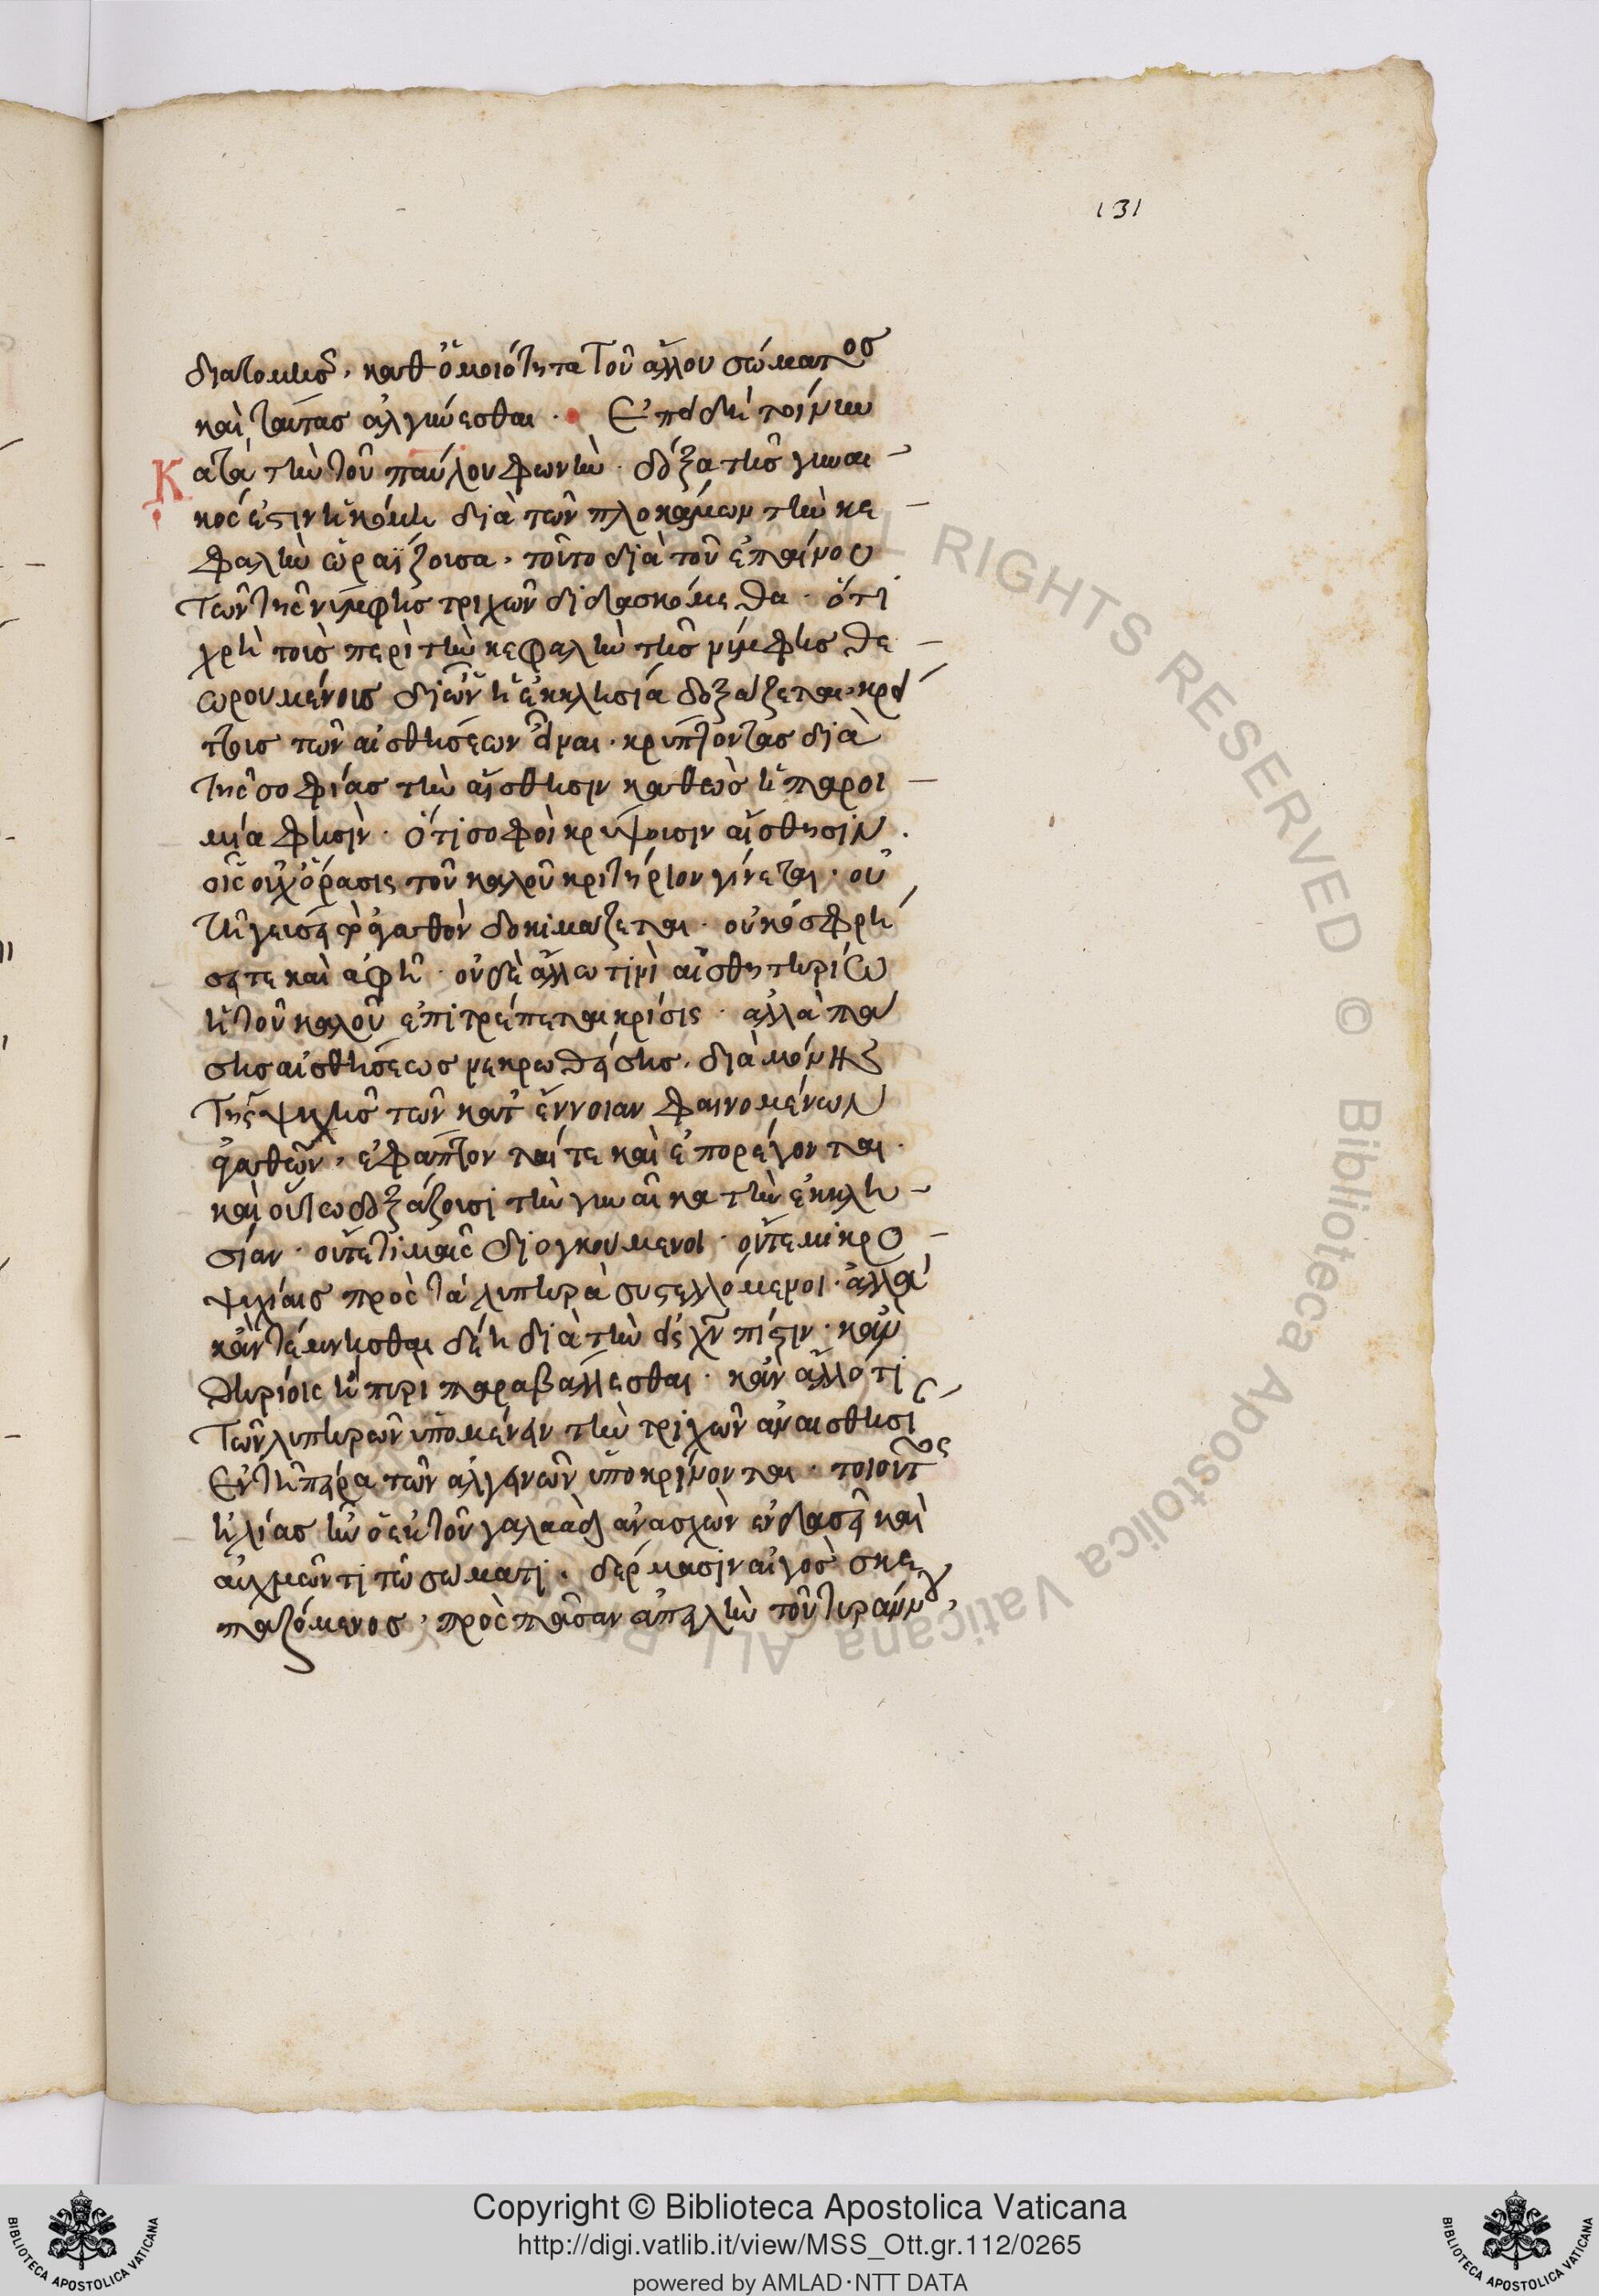 131
διατομῆς, καθ ὁμοιότητα τοῦ ἄλλου σώματος
καὶ ταύτας ἀλγύνεσθαι. Ἐπειδὴ τοίνυν
Κατὰ τὴν τοῦ παύλου φωνὴν. δόξα τῆς γυναι
κός ἐστιν ἡ κόμη διὰ τῶν πλοκάμων τὴν κε
φαλὴν ὡραΐζουσα, τοῦτο διὰ τοῦ ἐπαίνου
τῶν τῆς νύμφης τριχῶν διδασκόμεθα. ὅτι
χρὴ τοὺς περὶ τὴν κεφαλὴν τῆς νύμφης θε
ωρουμένους δι ὧν ἡ ἐκκλησία δοξάζεται, κρεί
ττους τῶν αἰσθήσεων εἶναι. κρύπτοντας διὰ
τῆς σοφίας τὴν αἴσθησιν καθὼς ἡ παροι
μία φησὶν. ὅτι σοφοὶ κρύψουσιν αἴσθησιν.
οἷς οὐχ ὅρασις τοῦ καλοῦ κριτήριον γίνεται. οὐ
τῇ γεύσει τὸ ἀγαθὸν δοκιμάζεται. οὐκ ὀσφρή
σει τε καὶ ἁφῇ. οὐδὲ ἄλλω τινὶ αἰσθητηρίω
ἡ τοῦ καλοῦ ἐπιτρέπεται κρίσις. ἀλλὰ πά
σης αἰσθήσεως νεκρωθείσης, διὰ μόνης
τῆς ψυχῆς τῶν κατ ἔννοιαν φαινομένων
ἀγαθῶν, ἐφάπτονταί τε καὶ ἐπορέγονται.
καὶ οὕτω δοξάζουσι τὴν γυναῖκα τὴν ἐκκλη
σίαν. οὔτε τιμαῖς διογκούμενοι. οὔτε μικρο
ψυχίαις πρὸς τὰ λυπηρὰ συστελλόμενοι. ἀλλὰ
κἂν τέμνεσθαι δέη διὰ τὴν εἰς χν πίστιν. κἂν
θηρίοις ἢ πυρὶ παραβάλλεσθαι. κἂν ἄλλό τι
τῶν λυπηρῶν ὑπομένειν τὴν τριχῶν ἀναισθησί
ἐν τῇ πείρα τῶν ἀλγεινῶν ὑποκρίνονται. τοιοῦτος
ἠλίας ἦν ὁ ἐκ τοῦ γαλαὰδ ἀνασχὼν ἐν δασεῖ καὶ
αὐχμῶντι τῶ σώματι. δέρμασιν αἰγὸς σκε
παζόμενος. πρὸς πᾶσαν ἀπειλὴν τοῦ τυράννου,
ALL RIGHTS RESERVED © Biblioteca Apostolica Vaticana
Copyright © Biblioteca Apostolica Vaticana
http://digi.vatlib.it/view/MSS_Ott.gr.112/0265
powered by AMLAD·NTT DATA
BIBLIOTECA APOSTOLICA VATICANA
BIBLIOTECA APOSTOLICA VATICANA